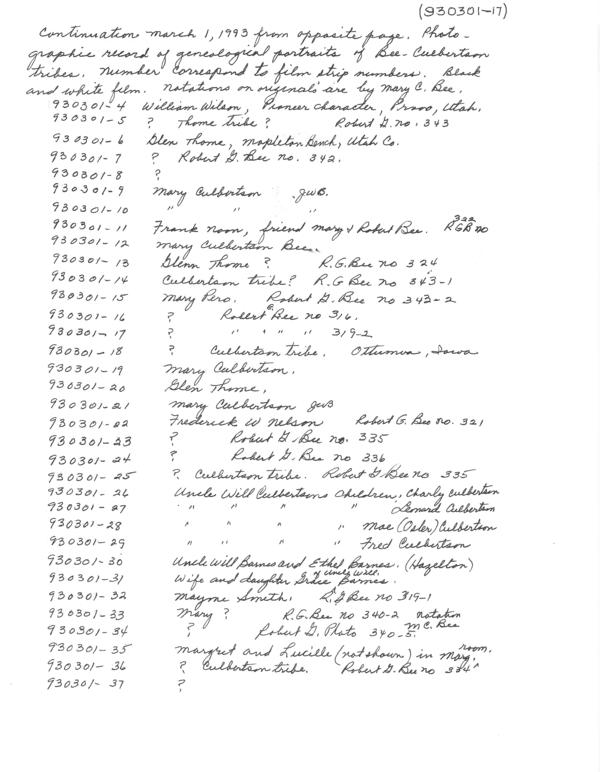 (930301-17)
Continuation March 1, 1993 from opposite page. Photo-
graphic record of genealogical portraits of Bee-Culbertson
tribes. Number correspond to film strip numbers. Black
and white film. Notations on originals are by Mary C. Bee.
930301-4 William Wilson, Pioneer Character, Provo, Utah.
930301-5 ? Thome tribe? Robert G. no. 343
930301-6 Glen Thome, Mapleton Bench, Utah Co.
930301-7 ? Robert G. Bee no. 342.
930301-8 ?
930301-9 Mary Culbertson JWB.
930301-10 " " "
930301-11 Frank Noon, friend Mary & Robert Bee. RGB no 322
930301-12 Mary Culbertson Bee.
930301-13 Glenn Thome ? R.G. Bee no 324
930301-14 Culbertson tribe? R.G Bee no 343-1
930301-15 Mary Pero. Robert G. Bee no 343-2
930301-16 ? Robert G. Bee no 316.
930301-17 ? " " " " 319-2
930301-18 ? Culbertson tribe. Ottumwa, Iowa
930301-19 Mary Culbertson.
930301-20 Glen Thome.
930301-21 Mary Culbertson JWB
930301-22 Frederick W Nelson Robert G. Bee no. 321
930301-23 ? Robert G. Bee no. 335
930301-24 ? Robert G. Bee no 336
930301-25 ? Culbertson tribe. Robert G. Bee no 335
930301-26 Uncle Will Culbertsons Children, Charly Culbertson
930301-27 " " " " Leonard Culbertson
930301-28 " " " " Mae (Osler) Culbertson
930301-29 " " " " Fred Culbertson
930301-30 Uncle Will Barnes and Ethel Barnes. (Hazelton)
930301-31 Wife and daughter of Uncle Will. Grace Barnes.
930301-32 Mayme Smith. R.G Bee no 319-1
930301-33 Mary ? R.G. Bee no 340-2 notation M C. Bee
930301-34 ? Robert G. Photo 340-5.
930301-35 Margret and Lucille (not shown) in Marg. room.
930301-36 ? Culbertson tribe. Robert G. Bee no 334
930301-37 ?